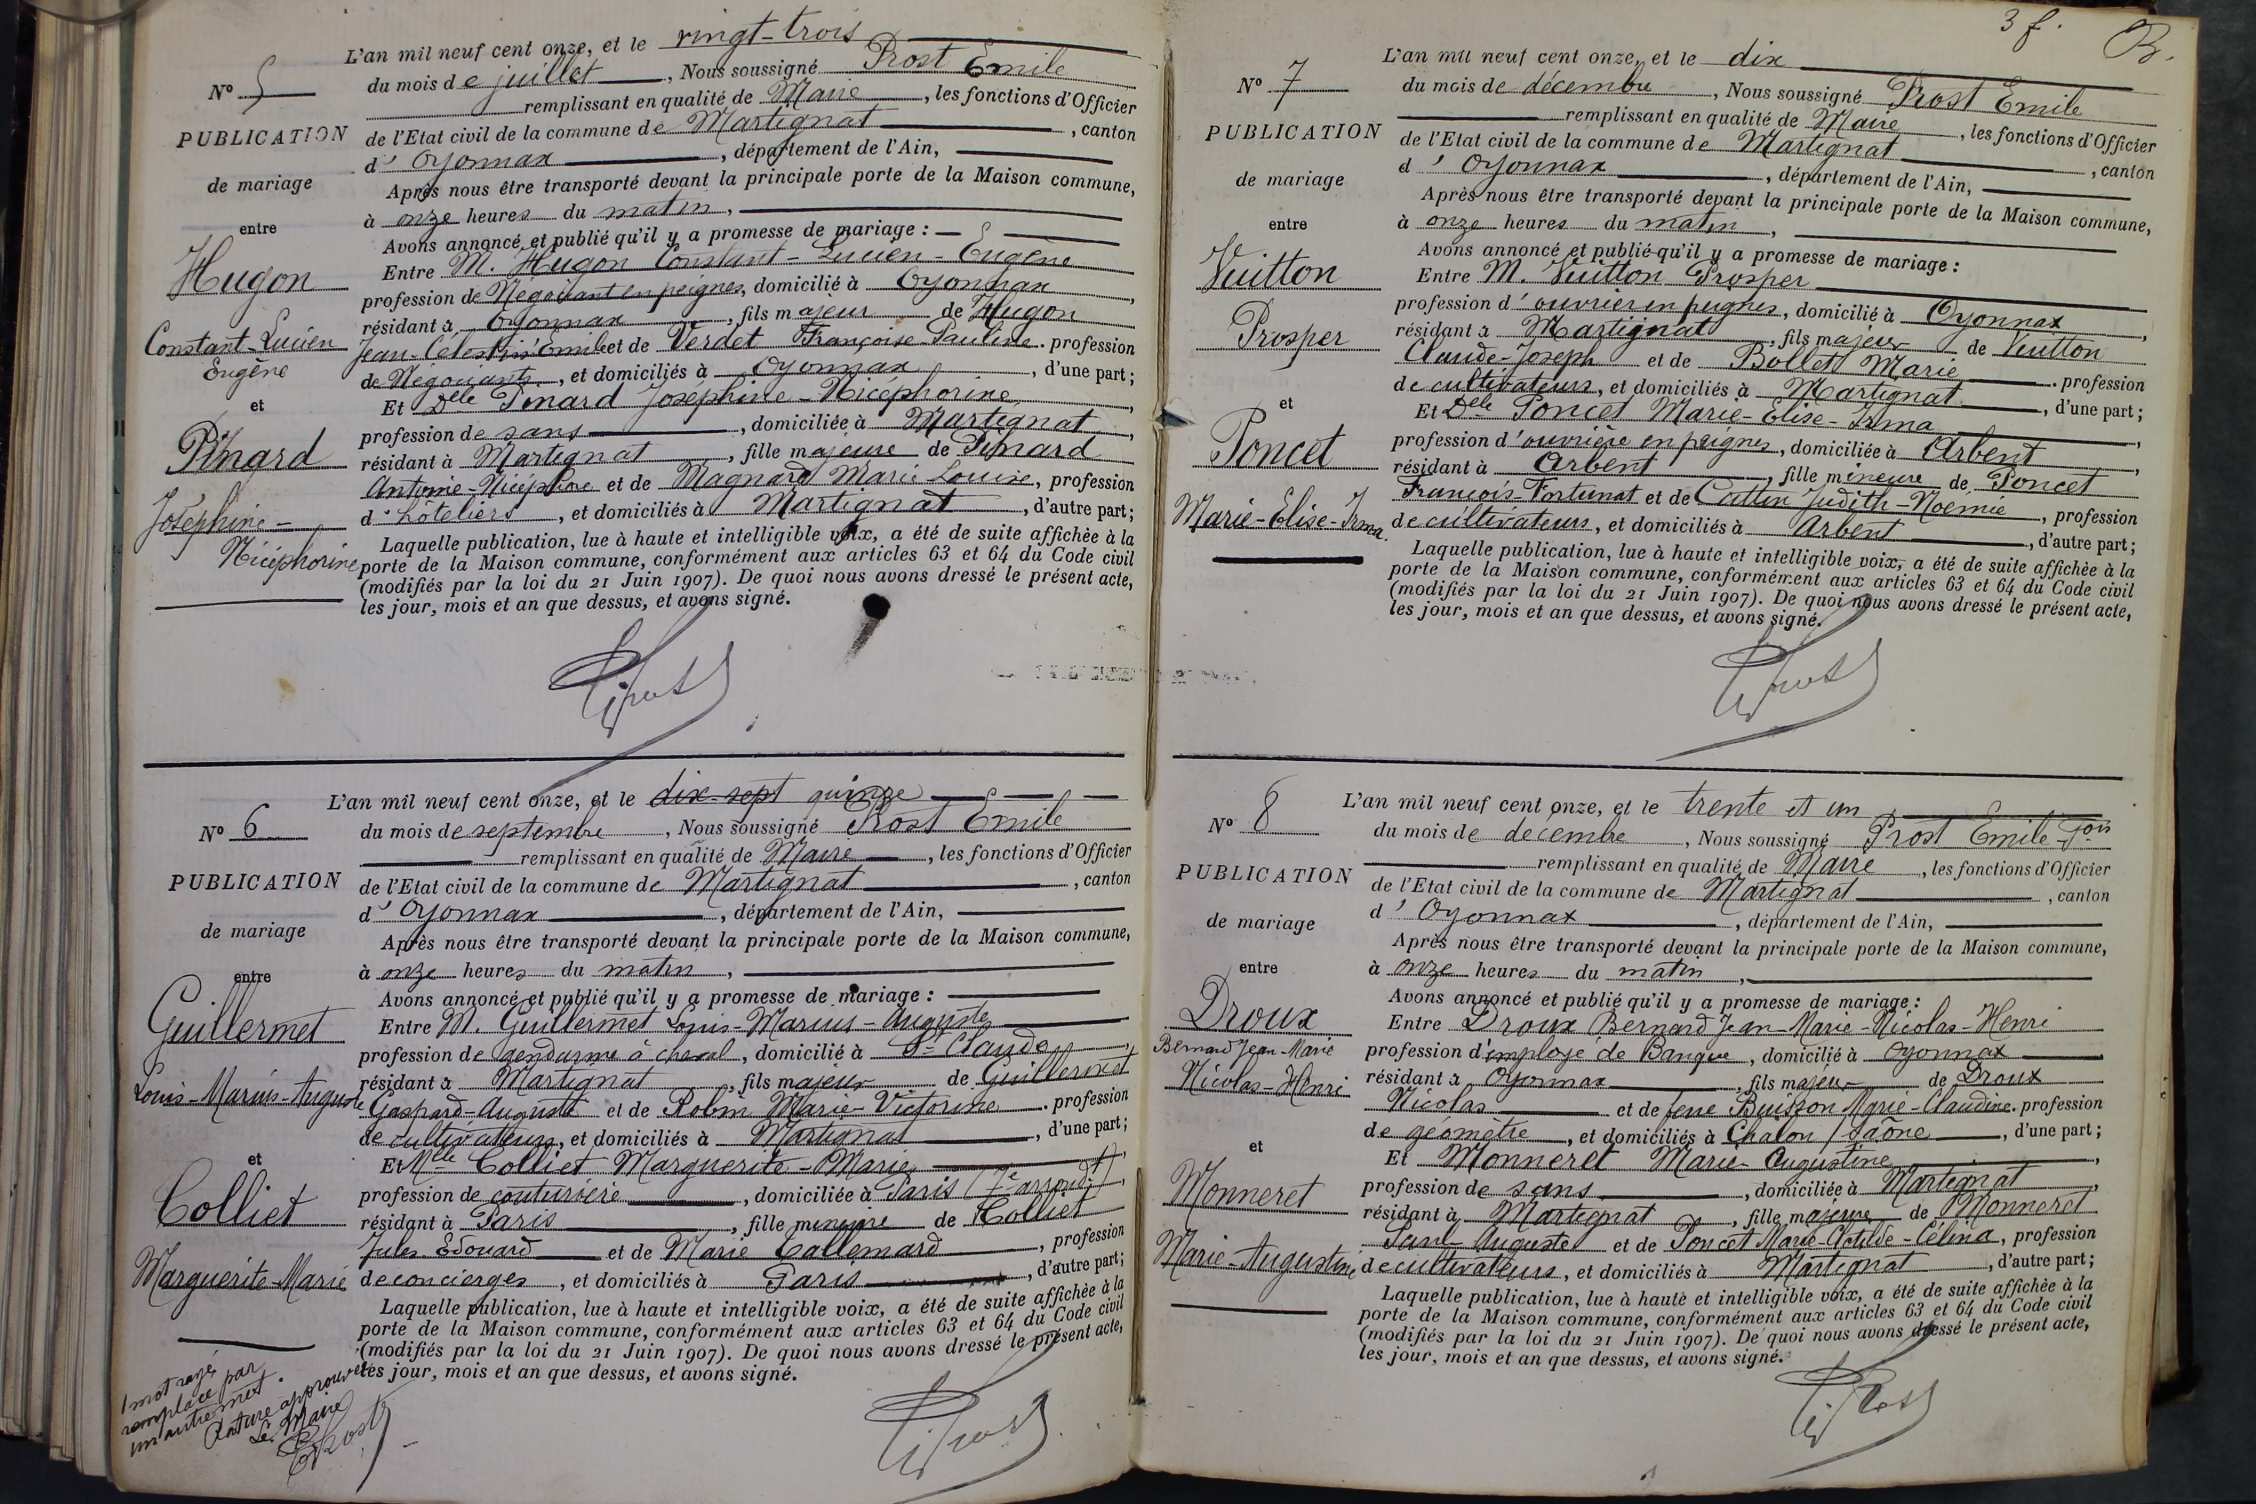 L'an mil neuf cent onze, et le vingt-trois
N° 5
du mois de juillet, Nous soussigné Prost Emile
remplissant en qualité de Maire, les fonctions d'Officier
PUBLICATION
de l'Etat civil de la commune de Martignat, canton
d'Oyonnax, département de l'Ain,
de mariage
Après nous être transporté devant la principale porte de la Maison commune,
à onze heures du matin,
entre
Avons annoncé et publié qu'il y a promesse de mariage :
Hugon
Entre M. Hugon Constant-Lucien-Eugène
profession de Négociant en peignes, domicilié à Oyonnax,
résidant à Oyonnax, fils majeur de Hugon
Constant-Lucien
Jean-Célestin Emile et de Verdet Françoise-Pauline. profession
Eugène
de Négociants, et domiciliés à Oyonnax, d'une part;
et
Et Delle Pinard Joséphine-Nicéphorine,
profession de sans, domiciliée à Martignat,
Pinard
résidant à Martignat, fille majeure de Pinard
Antoine-Nicéphore et de Magnard Marie Louise, profession
Joséphine-
d'hôteliers, et domiciliés à Martignat, d'autre part;
Nicéphorine
Laquelle publication, lue à haute et intelligible voix, a été de suite affichée à la
porte de la Maison commune, conformément aux articles 63 et 64 du Code civil
(modifiés par la loi du 21 Juin 1907). De quoi nous avons dressé le présent acte,
les jour, mois et an que dessus, et avons signé.
Prost
L'an mil neuf cent onze, et le dix-sept quinze
N° 6
du mois de septembre, Nous soussigné Prost Emile
remplissant en qualité de Maire, les fonctions d'Officier
PUBLICATION
de l'Etat civil de la commune de Martignat, canton
d'Oyonnax, département de l'Ain,
de mariage
Après nous être transporté devant la principale porte de la Maison commune,
à onze heures du matin,
entre
Avons annoncé et publié qu'il y a promesse de mariage :
Guillermet
Entre M. Guillermet Louis-Marius-Auguste
profession de gendarme à cheval, domicilié à St Claude,
résidant à Martignat, fils majeur de Guillermet
Louis-Marius-Auguste
Gaspard-Auguste et de Robin Marie-Victorine. profession
de cultivateurs, et domiciliés à Martignat, d'une part;
et
Et Melle Colliet Marguerite-Marie,
profession de couturière, domiciliée à Paris (7e arrondt),
Colliet
résidant à Paris, fille mineure de Colliet
Jules Edouard et de Marie Callemard, profession
Marguerite-Marie
de concierges, et domiciliés à Paris, d'autre part;
Laquelle publication, lue à haute et intelligible voix, a été de suite affichée à la
porte de la Maison commune, conformément aux articles 63 et 64 du Code civil
(modifiés par la loi du 21 Juin 1907). De quoi nous avons dressé le présent acte,
les jour, mois et an que dessus, et avons signé.
1 mot rayé
remplacé par
un autre mot.
Rature approuvée
Le Maire
EProst
Prost
3 f. B.
L'an mil neuf cent onze, et le dix
N° 7
du mois de décembre, Nous soussigné Prost Emile
remplissant en qualité de Maire, les fonctions d'Officier
PUBLICATION
de l'Etat civil de la commune de Martignat, canton
d'Oyonnax, département de l'Ain,
de mariage
Après nous être transporté devant la principale porte de la Maison commune,
entre
à onze heures du matin,
Avons annoncé et publié qu'il y a promesse de mariage :
Vuitton
Entre M. Vuitton Prosper
profession d'ouvrier en peignes, domicilié à Oyonnax,
Prosper
résidant à Martignat, fils majeur de Vuitton
Claude-Joseph et de Bollet Marie. profession
de cultivateurs, et domiciliés à Martignat, d'une part;
et
Et Delle Poncet Marie-Elise-Irma,
profession d'ouvrière en peignes, domiciliée à Arbent,
Poncet
résidant à Arbent, fille mineure de Poncet
François-Fortunat et de Cattin Judith-Noémie, profession
Marie-Elise-Irma.
de cultivateurs, et domiciliés à Arbent, d'autre part;
Laquelle publication, lue à haute et intelligible voix, a été de suite affichée à la
porte de la Maison commune, conformément aux articles 63 et 64 du Code civil
(modifiés par la loi du 21 Juin 1907). De quoi nous avons dressé le présent acte,
les jour, mois et an que dessus, et avons signé.
Prost
L'an mil neuf cent onze, et le trente et un
N° 8
du mois de décembre, Nous soussigné Prost Emile-Fois
remplissant en qualité de Maire, les fonctions d'Officier
PUBLICATION
de l'Etat civil de la commune de Martignat, canton
d'Oyonnax, département de l'Ain,
de mariage
Après nous être transporté devant la principale porte de la Maison commune,
entre
à onze heures du matin,
Avons annoncé et publié qu'il y a promesse de mariage :
Droux
Entre Droux Bernard Jean-Marie-Nicolas-Henri
Bernard Jean-Marie
profession d'employé de Banque, domicilié à Oyonnax
Nicolas-Henri
résidant à Oyonnax, fils majeur de Droux
Nicolas et de feue Buisson Marie-Claudine. profession
de géomètre, et domiciliés à Chalon s/ Saône, d'une part;
et
Et Monneret Marie-Augustine,
profession de sans, domiciliée à Martignat,
Monneret
résidant à Martignat, fille majeure de Monneret
Paul-Auguste et de Poncet Marie-Clotilde-Célina, profession
Marie-Augustine
de cultivateurs, et domiciliés à Martignat, d'autre part;
Laquelle publication, lue à haute et intelligible voix, a été de suite affichée à la
porte de la Maison commune, conformément aux articles 63 et 64 du Code civil
(modifiés par la loi du 21 Juin 1907). De quoi nous avons dressé le présent acte,
les jour, mois et an que dessus, et avons signé.
Prost